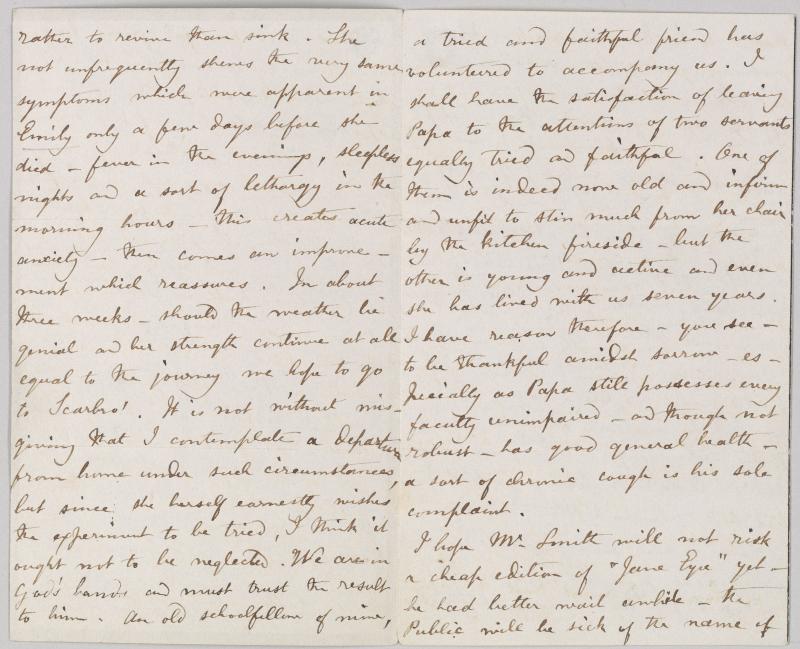 rather to revive than sink. She
not unfrequently shews the very same
symptoms which were apparent in
Emily only a few days before she
died – fever in the evenings, sleepless
nights and a sort of lethargy in the
morning hours – this creates acute
anxiety – then comes an improve-
ment which reassures. In about
three weeks – should the weather be
genial and her strength continue at all
equal to the journey we hope to go
to Scarbro'. It is not without mis-
giving that I contemplate a departure
from home under such circumstances,
but since she herself earnestly wishes
the experiment to be tried, I think it
ought not to be neglected. We are in
God's hands and must trust the result
to him. An old schoolfellow of mine,
a tried and faithful friend has
volunteered to accompany us. I
shall have the satisfaction of leaving
Papa to the attentions of two servants
equally tried and faithful. One of
them is indeed now old and infirm
and unfit to stir much from her chair
by the kitchen fireside – but the
other is young and active and even
she has lived with us seven years.
I have reason therefore – you see –
to be thankful amidst sorrow – es-
pecially as Papa still possesses every
faculty unimpaired – and though not
robust – has good general health –
a sort of chronic cough is his sole
complaint.
I hope Mr. Smith will not risk
a cheap edition of "Jane Eyre" yet –
he had better wait awhile – the
Public will be sick of the name of